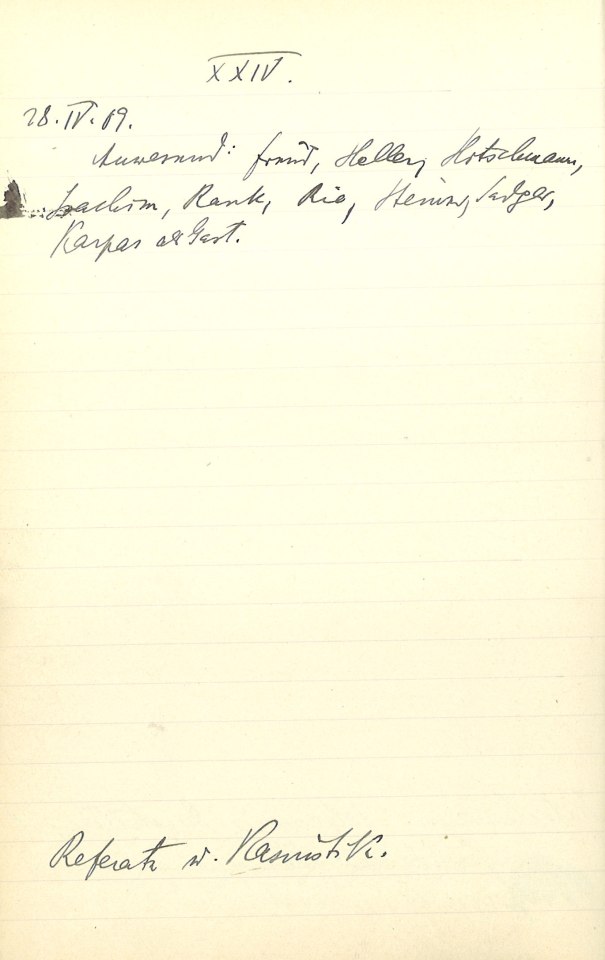 XXIV.
28.IV.09.
Anwesend: Freud, Heller, Hitschmann,
Joachim, Rank, Rie, Steiner, Sadger,
Karpas als Gast.
Referate u. Kasuistik.